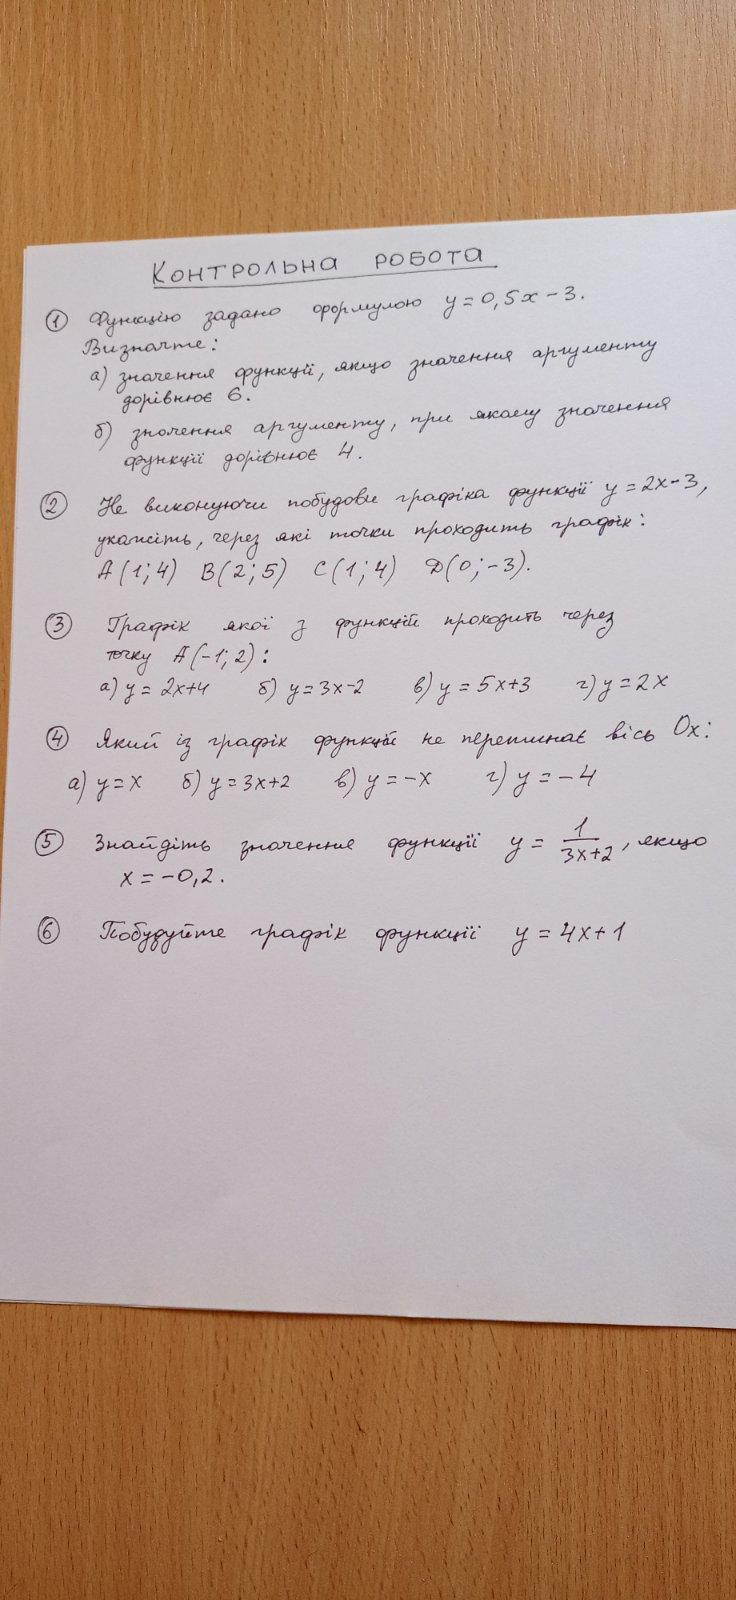 Контрольна робота
① Функцію задано формулою y = 0,5x - 3.
Визначте:
а) значення функції, якщо значення аргументу
дорівнює 6.
б) значення аргументу, при якому значення
функції дорівнює 4.
② Не виконуючи побудови графіка функції y = 2x - 3,
укажіть, через які точки проходить графік:
A(1;4) B(2;5) C(1;4) D(0;-3).
③ Графік якої з функцій проходить через
точку A(-1;2):
а) y = 2x+4 б) y = 3x-2 в) y = 5x+3 г) y = 2x
④ Який із графік функцій не перетинає вісь Ox:
а) y = x б) y = 3x+2 в) y = -x г) y = -4
⑤ Знайдіть значення функції y = 1/(3x+2), якщо
x = -0,2.
⑥ Побудуйте графік функції y = 4x+1